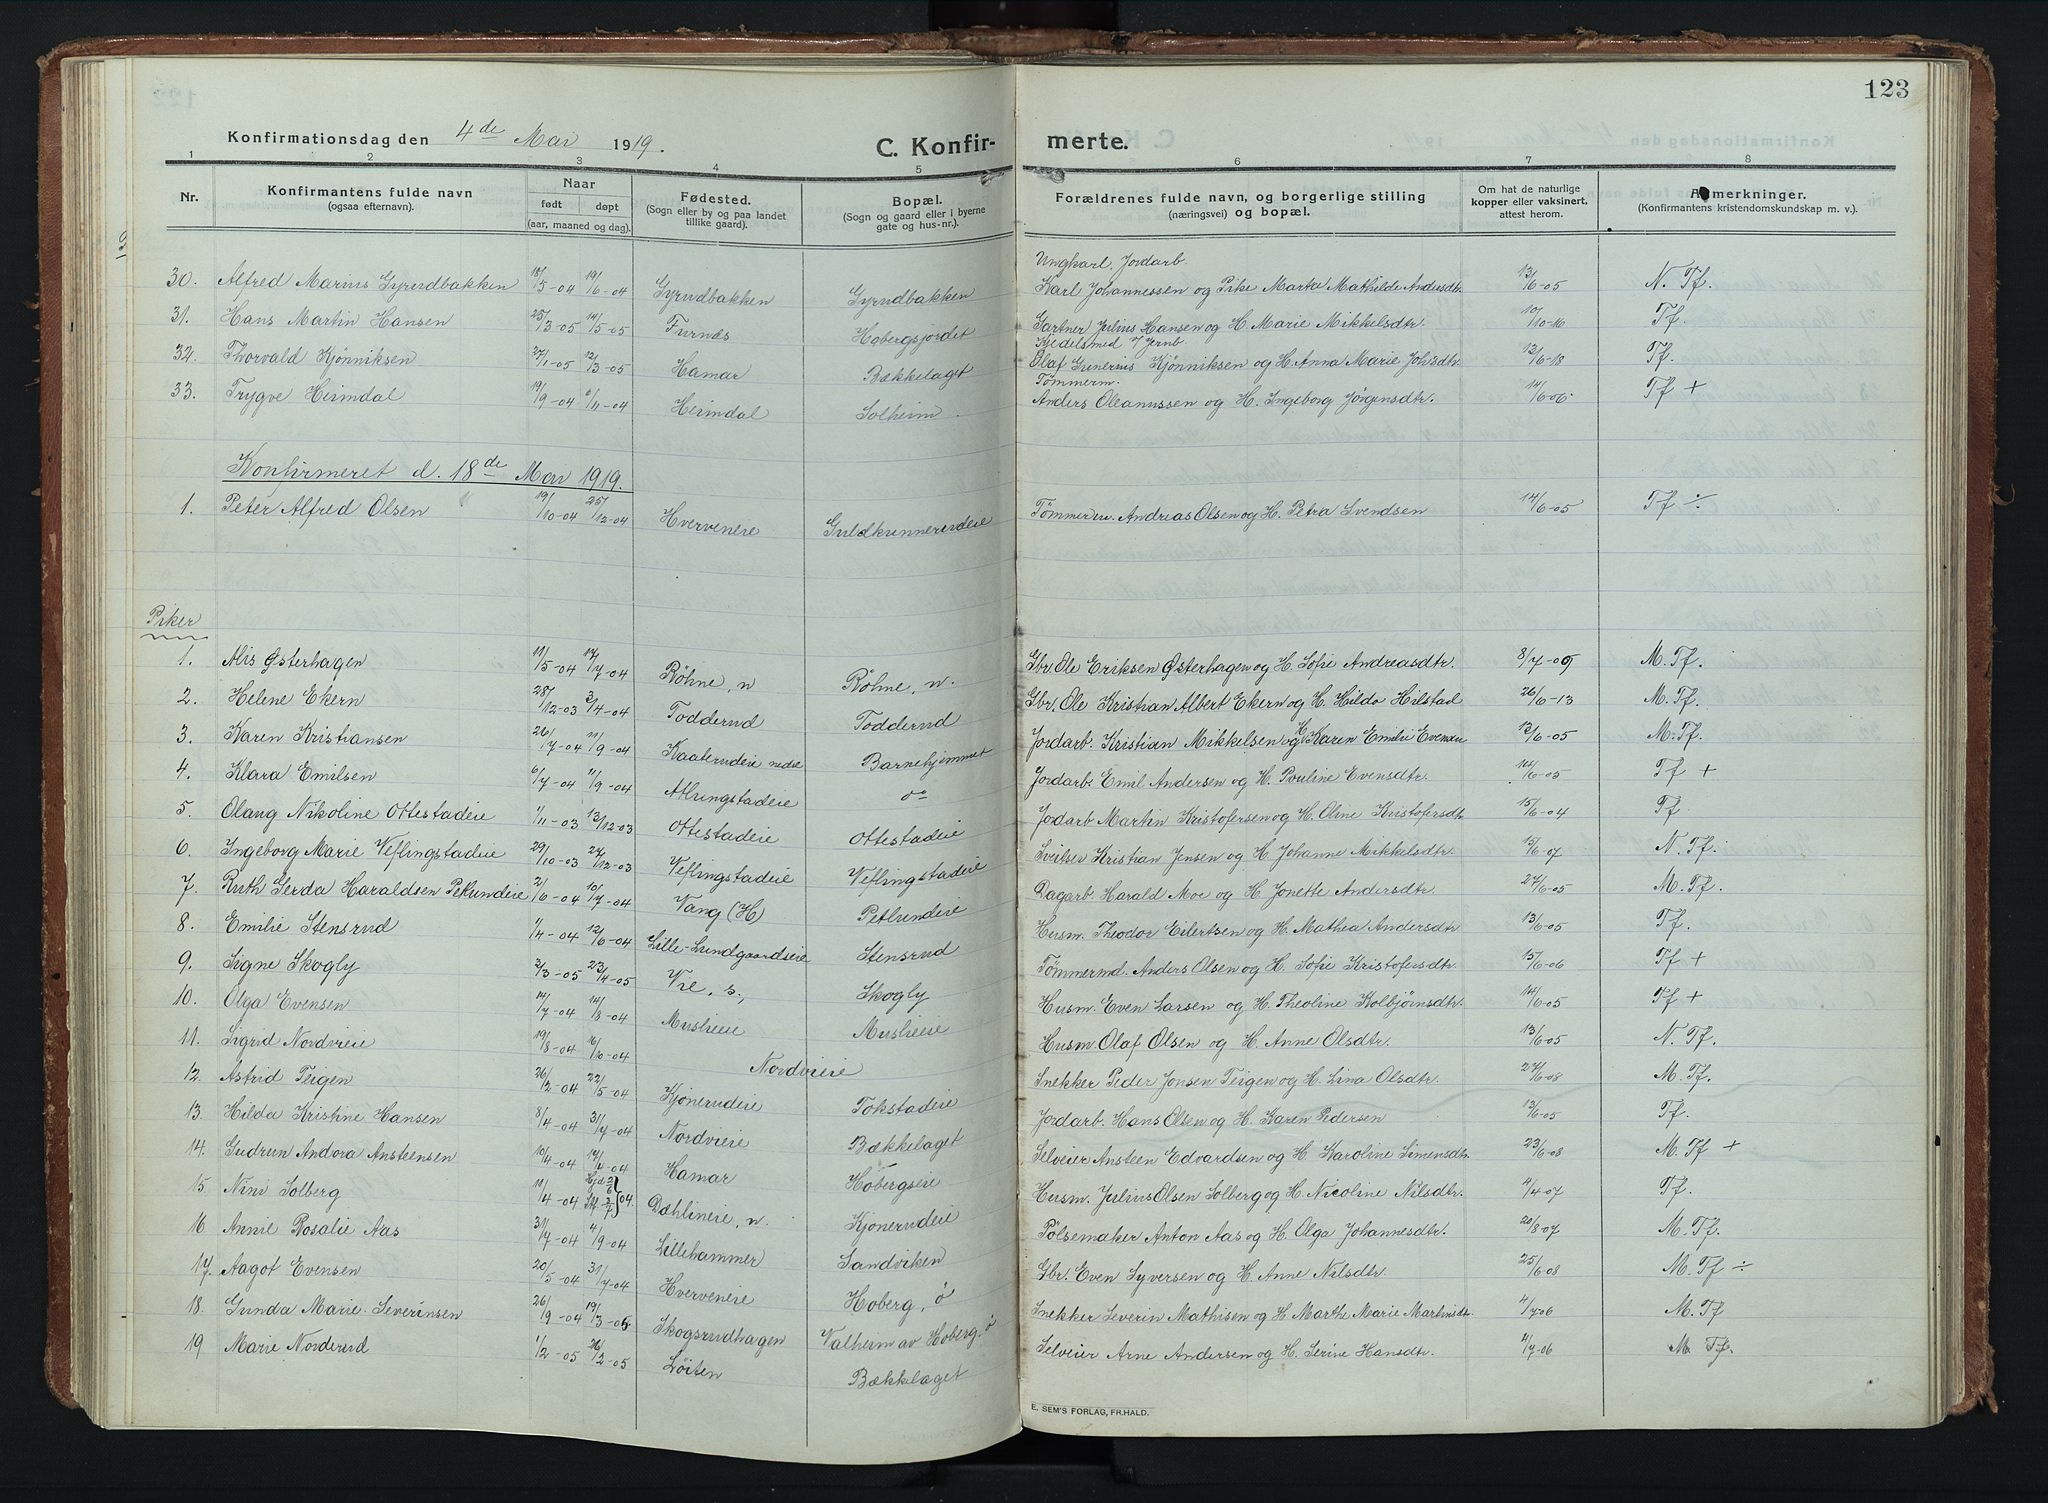 123
Konfirmationsdag den 4de Mai 1919. C. Konfirmerte.
1 2 3 4 5 6 7 8
Nr. Konfirmantens fulde navn (ogsaa efternavn). Naar født døpt (aar, maaned og dag). Fødested. (Sogn eller by og paa landet tillike gaard). Bopæl. (Sogn og gaard eller i byerne gate og hus-nr.). Forældrenes fulde navn, og borgerlige stilling (næringsvei) og bopæl. Om hat de naturlige kopper eller vaksinert, attest herom. Anmerkninger. (Konfirmantens kristendomskundskap m. v.).
30. Alfred Marius Gyrudbakken 18/5-04 19/6-04 Gyrudbakken Gyrudbakken Ungkarl. Jordarb. Karl Johannessen og Pike Marta Mathilde Andersdtr. 13/6-05 N. Tf.
31. Hans Martin Hansen 25/3-05 14/5-05 Furnes Hobergsjordet Gartner Julius Hansen og H. Marie Mikkelsdtr. 10/10-16 Tf.
32. Thorvald Kjønniksen 27/1-05 12/3-05 Hamar Bækkelaget Kjedelsmed v/ Jernb. Olaf Gunerius Kjønniksen og H. Anna Marie Johsdtr. 12/6-18 Tf.
33. Trygve Heimdal 19/9-04 6/11-04 Heimdal Solheim Tømmerm. Anders Oleanussen og H. Ingeborg Jørgensdtr. 14/6-06. Tf +
Konfirmeret d. 18de Mai 1919.
1. Peter Alfred Olsen 19/10-04 25/12-04 Hverveneie Tømmerm. Andreas Olsen og H. Petra Svendsen 14/6-05 Tf ÷
Piker
1. Alis Østerhagen 11/5-04 17/7-04 Røhne, n Røhne, n. Gbr. Ole Eriksen Østerhagen og H. Sofie Andreasdtr. 8/7-05 M. Tf.
2. Helene Ekern 28/12-03 3/4-04 Todderud Todderud Gbr. Ole Kristian Albert Ekern og H. Hilda Hilstad 26/6-13 M. Tf.
3. Karen Kristiansen 26/7-04 11/9-04 Kaaterudeie nedre Barnehjemmet Jordarb. Kristian Mikkelsen og H Karen Emilie Evensen 12/6-05 M. Tf.
4. Klara Emilsen 6/7-04 11/9-04 Atlungstadeie do Jordarb. Emil Andersen og H. Pouline Evensdtr. 14/6-05 Tf +
5. Olaug Nikoline Ottestadeie 1/11-03 13/12-03 Ottestadeie Ottestadeie Jordarb Martin Kristofersen og H. Oline Kristofersdtr 15/6-04 Tf.
6. Ingeborg Marie Veflingstadeie 29/10-03 27/12-03 Veflingstadeie Veflingstadeie Sveitser Kristian Jensen og H. Johanne Mikkelsdtr. 15/6-07 N. Tf.
7. Ruth Gerda Haraldsen Petlundeie 2/6-04 10/7-04 Vang (H) Petlundeie Dagarb. Harald Moe og H. Jonette Andersdtr. 27/6-05 M. Tf.
8. Emilie Stensrud 1/4-04 12/6-04 Lille-Lundgaardseie Stensrud Husm. Theodor Eilertsen og H. Mathea Andersdtr 13/6-05 Tf.
9. Signe Skogly 2/3-05 23/4-05 Vie, s., Skogly Tømmermd. Anders Olsen og H. Sofie Kristofersdtr. 15/6-06 Tf +
10. Olga Evensen 14/7-04 14/8-04 Muslieie Muslieie Husm. Even Larsen og H. Theoline Kolbjørnsdtr. 14/6-05 Tf +
11. Sigrid Nordvieie 19/8-04 16/10-04 Nordvieie Husm. Olaf Olsen og H. Anne Olsdtr. 13/6-05 N. Tf.
12. Astrid Teigen 26/2-04 22/5-04 Kjønerudeie Tokstadeie Snekker Peder Jonsen Teigen og H. Lina Olsdtr. 27/6-08 M. Tf.
13. Hilda Kristine Hansen 8/4-04 31/7-04 Nordvieie Bækkelaget Jordarb. Hans Olsen og H. Karen Pedersen 13/6-05 Tf.
14. Gudrun Andora Ansteensen 10/4-04 14/4-04 Hamar Høbergseie Selveier Ansteen Edvardsen og H. Karoline Simensdtr. 23/6-08 M. Tf +
15. Nini Solberg 11/4-04 Hjd 2/6 St. 3/7 } 04. Dæhlineie, n. Kjønerudeie Husm. Julius Olsen Solberg og H. Nicoline Nilsdtr. 4/4-07 Tf.
16 Annie Rosalie Aas 31/7-04 4/9-04 Lillehammer Sandviken Pølsemaker Anton Aas og H. Olga Johannesdtr. 20/8-07 M. Tf.
17. Aagot Evensen 20/5-04 31/7-04 Hverveneie Hoberg, ø Gbr. Even Syversen og H. Anne Nilsdtr. 25/6-08 M. Tf ÷
18. Gunda Marie Severinsen 26/9-04 19/3-05 Skogsrudhagen Valheim av Hoberg. ø Snekker Severin Mathisen og H. Marthe Marie Martinsdtr. 4/7-06 M. Tf
19 Marie Norderud 1/2-05 26/2-05 Løiten Bækkelaget Selveier Arne Andersen og H. Serine Hansdtr. 4/7-06 M. Tf.
E. SEM'S FORLAG, FR.HALD.